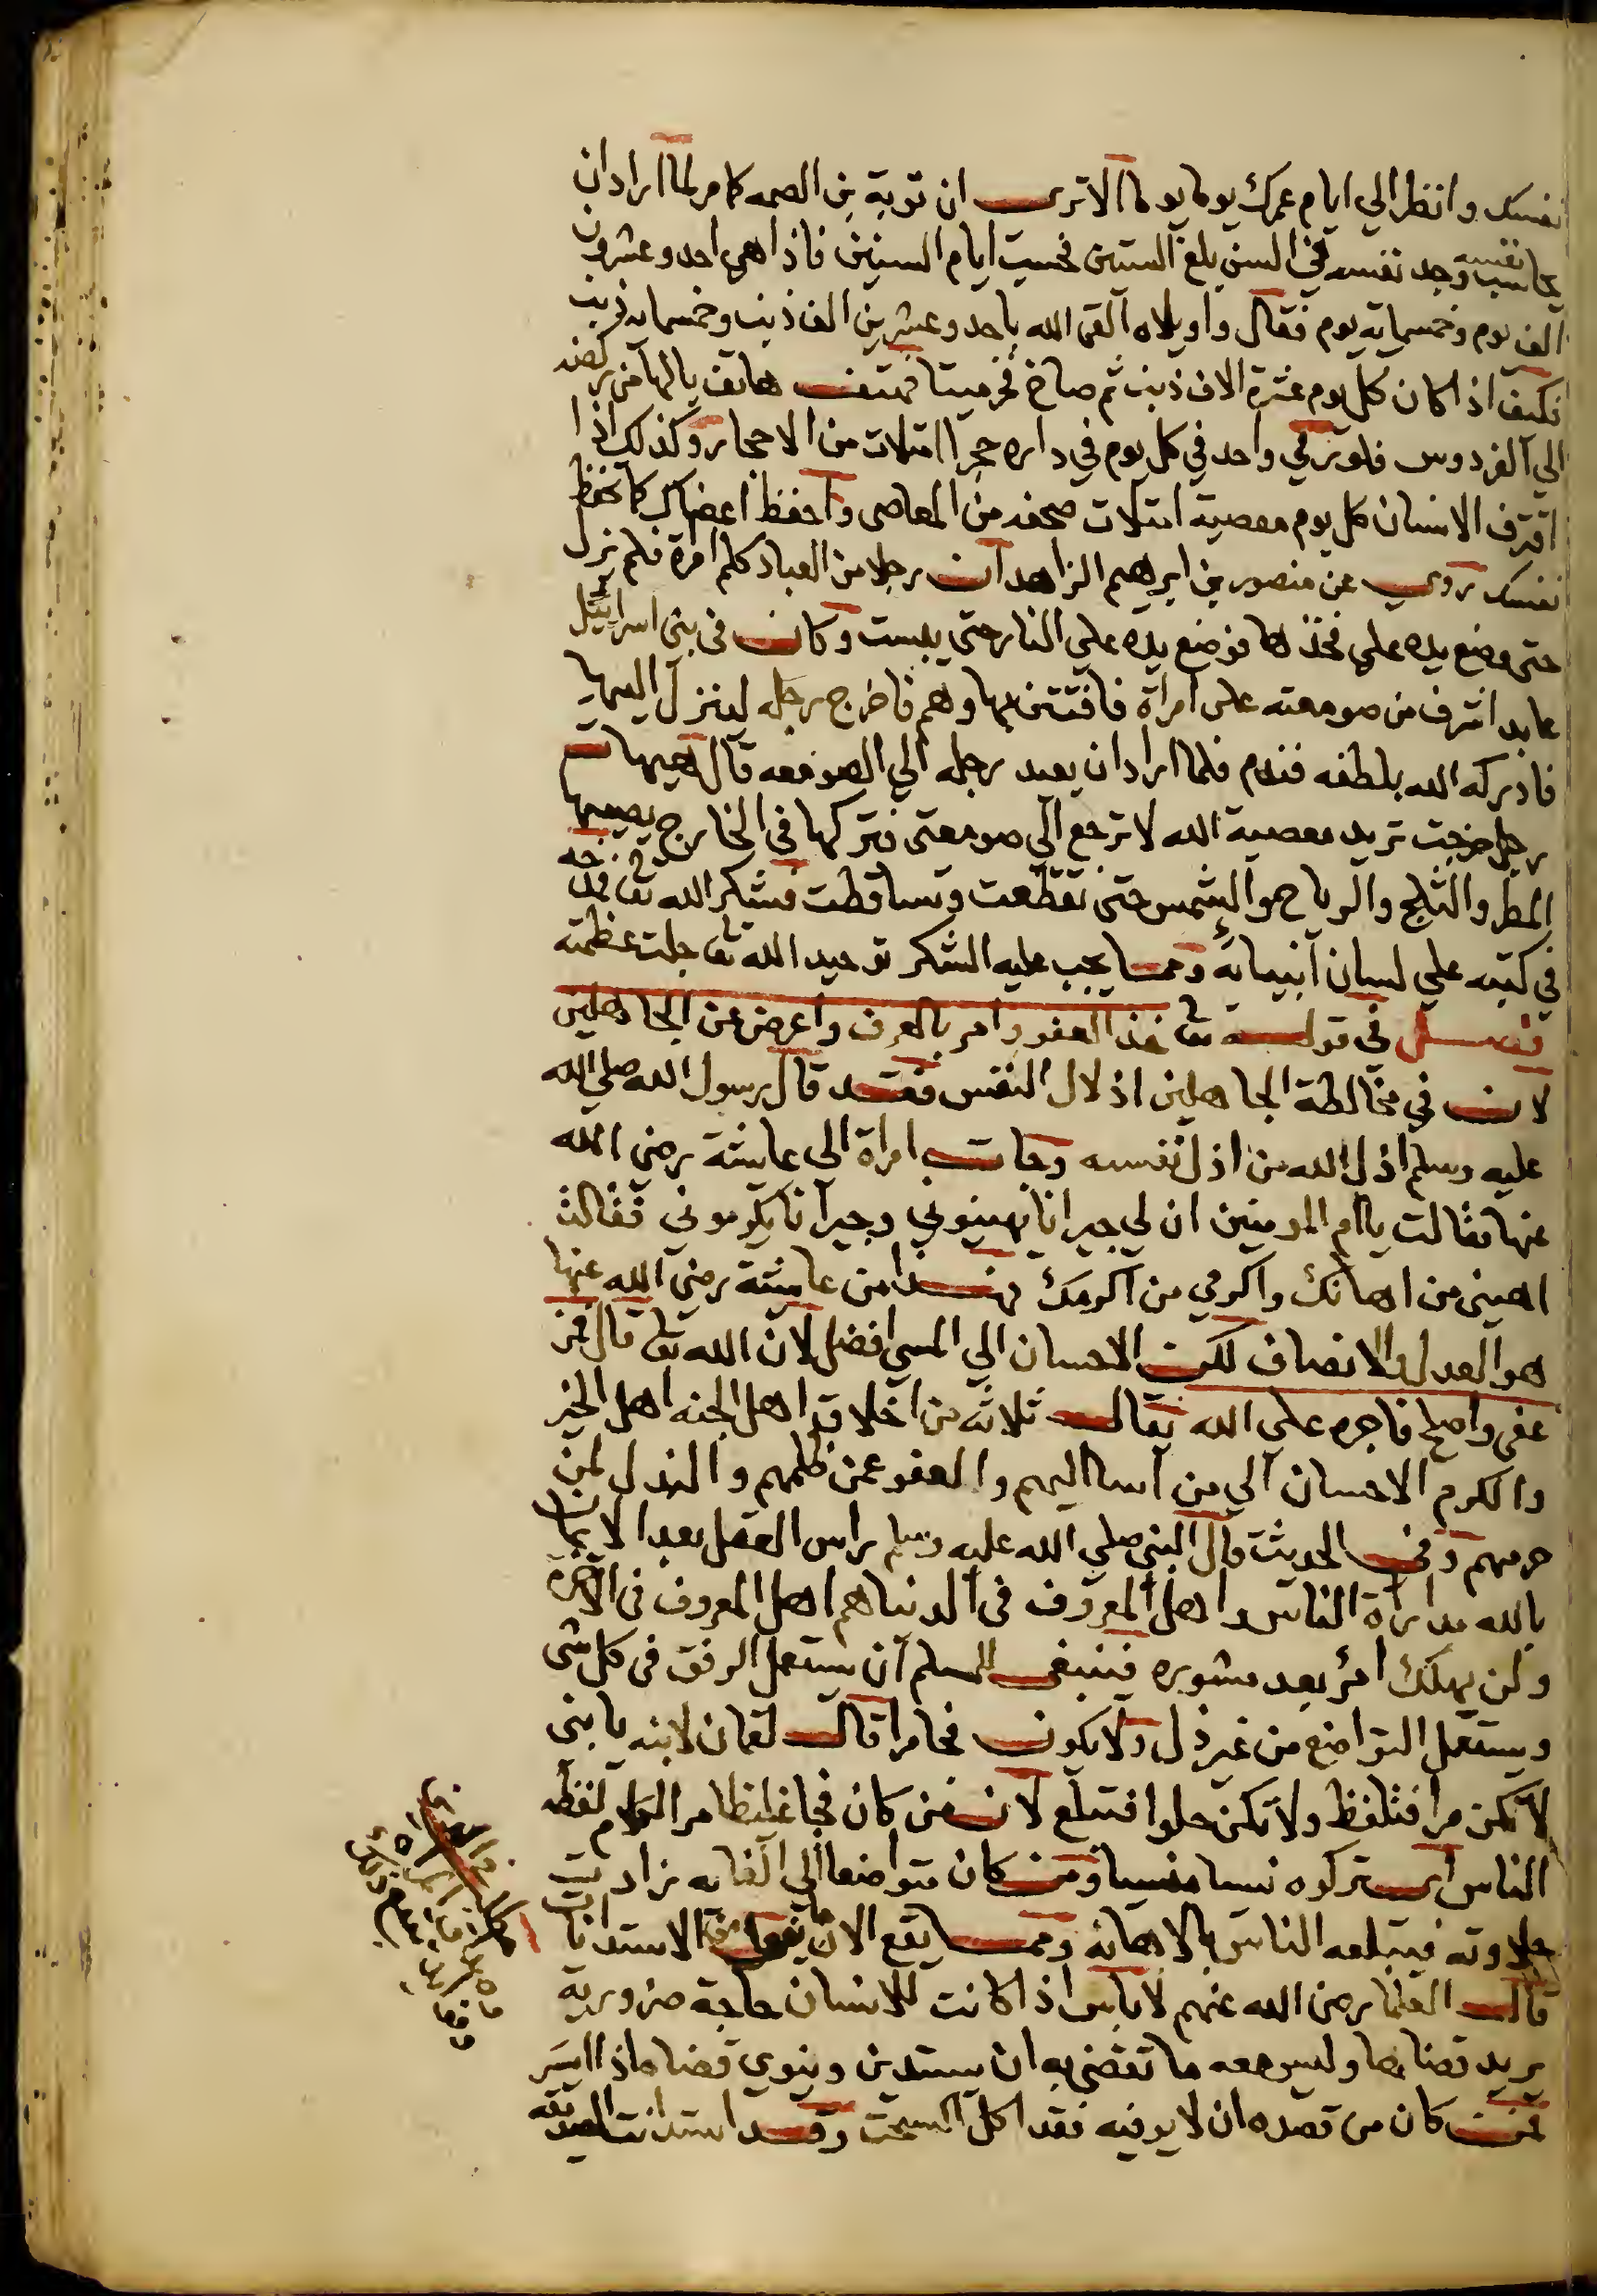 نفسك وانظر الي ايام عمرك يوما يوما الا ترى ان توبة بن الصمه كا مر لما اراد ان
يحاسب نفسه وجد نفسه في السن بلغ الستين فحسب ايام السنين فاذا هي احد وعشرون
الف يوم وخمسماية يوم فقال واويلاه القى الله باحد وعشرين الف ذنب وخمسماية ذنب
فكيف اذا كان كل يوم عشرة الاف ذنب ثم صاح فخر ميتا فهتف هاتف يالها من ركضة
الي الفردوس فلو رمي واحد في كل يوم في داره حجرا امتلات من الاحجار وكذلك اذا
اقترف الانسان كل يوم معصية امتلات صحفه من المعاصي واحفظ اعضاك كما تحفظ
نفسك روي عن منصور بن ابرهيم الزاهد ان رجلا من العباد كلم امرة فلم يزل
حتى وضع يده علي فخذها فوضع يده علي النار حتى يبست وكان في بني اسرائيل
عابد اشرف من صومعته على امراة فافتتن بها وهم فاخرج رجله لينزل اليها
فادركه الله بلطفه فندم فلما اراد ان يعيد رجله الي الصومعه قال هيهات
رجل خرجت تريد معصية الله لا ترجع الي صومعتى فتركها في الخارج يصيبها
المطر والثلج والرياح والشمس حتى تقطعت وتساقطت فشكر الله تعا فمدحه
في كتبه علي لسان انبيائه ومما يجب عليه الشكر توحيد الله تعا جلت عظمته
فصل في قوله تعا خذ العفو وامر بالعرف واعرض عن الجاهلين
لان في مخالطة الجاهلين اذلال النفس فقد قال رسول الله صلي الله
عليه وسلم اذل الله من اذل نفسه وجات امراة الى عايشة رضي الله
عنها فقالت يا ام المومنين ان لي جيرانا يهينوني وجيرانا يكرموني فقالت
اهيني من اهانك واكرمي من اكرمك فهذا من عايشة رضي الله عنها
هو العدل والانصاف لكن الاحسان الي المسي افضل لان الله تعا قال فمن
عفى واصلح فاجره علي الله يقال ثلاثة من اخلاق اهل الجنه اهل الخير
والكرم الاحسان الي من اسا اليهم والعفو عمن ظلمهم والبذل لمن
حرمهم وفي الحديث قال النبي صلي الله عليه وسلم راس العقل بعد الايمان
بالله مداراة الناس واهل المعروف في الدنيا هم اهل المعروف في الاخرة
ولن يهلك امرؤ بعد مشوره فينبغي للمسلم ان يستعمل الرفق في كل شي
ويستعمل التواضع من غير ذل ولا يكون فخامرا قال لقمان لابنه يا بني
لا تكن مرا فتلفظ ولا تكن حلوا فتبلع لان من كان فجا غليظا مر الكلام لفظه
الناس اي تركوه نسيا منسيا ومن كان متواضعا الي الغايه زادت
حلاوته فيبتلعه الناس بالاهانه ومما يقع الان الاستدانات
قال العلما رضي الله عنهم لا باس اذا كانت للانسان حاجة ضرورية
يريد قضاها وليس معه ما تقضي به ان يستدين وينوي قضاها اذا ايسر
فمن كان من قصده ان لا يوفيه فقد اكل السحت وقد استدانت الصديقه